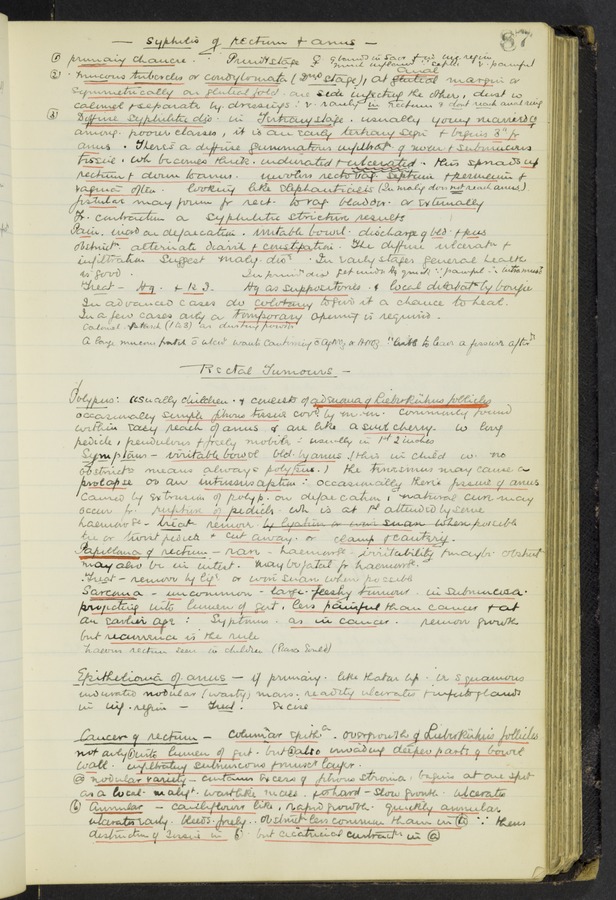 87
— Syphilis of rectum & anus —
① primary chancre
② mucous tubercles or condylomata (2nd stage), at anal margins or
symmetrically on gluteal fold. are side infecting the other, dust w
calomel & separate by dressings: v. rarely in rectum &
③ Diffuse Syphilitic dis. in Tertiary stage. usually young married
among poorer classes, it is an early tertiary sign & begins 3" fr
anus. There's a diffuse gummatous infiltratn of mucu & submucous
tissue, wh becomes thick, indurated & ulcerated. this spreads up
rectum & down to anus. involves recto vag. septum & perineum &
vagina often. looking like elephantiasis (In malig does not reach anus).
fistulae may form fr rect. to vag bladder. or externally
fr. contraction a syphilitic stricture results
Pain. incrd on defaecation. irritable bowel. discharge of bld & pus
obstructn alternate diarrh & constipation. The diffuse ulceratn &
infiltration suggest malig. diss. In early stages general health
is good.
Treat — Hg. & K I. Hg as suppositories. & local dilatatn by bougies
In advanced cases do colotomy to give it a chance to heal.
In a few cases only a temporary opening is required.
Calomel as dusting powder
Rectal Tumours —
Polypus: usually children. & consists of adenoma of Lieberkuhns follicles
occasionally simple fibrous tissue covd by m.m. commonly found
within easy reach of anus & are like a small cherry. w long
pedicle, pendulous & freely mobile: usually in 1st 2 inches
Symptoms — irritable bowel bld. by anus. (this in child w no
obstructn means always polypus.) the tenesmus may cause a
prolapse or an intussusception: occasionally there's fissure of anus
caused by extrusion of polyp. on defaecation, natural cure may
occur fr. rupture of pedicle wh is at 1st attended by severe
haemorrh — treat remove by ligature or wire snare when possible
tie or twist pedicle & cut away. or clamp & cautery.
Papilloma of rectum — rare — haemorrh — irritability & maybe obstruct
may also be in intest. may be fatal fr haemorrh.
Treat — remove by lig or wire snare when possible
Sarcoma — uncommon — large fleshy tumour in submucosa.
projecting into lumen of gut, less painful than cancer & at
an earlier age: Symptoms as in cancer. remove growth
but recurrence is the rule
seen in children
Epithelioma of anus — if primary. like that on lip. is squamous
indurated nodular (warty) mass. readily ulcerates & infects glands
in ing. region — Treat. Excise
Cancer of rectum — columnar epith. overgrowth of Lieberkuhns follicles
not only ① into lumen of gut. but ② also invading deeper parts of bowel
wall. infiltrating submucous & muscr layer.
ⓐ nodular variety — contains excess of fibrous stroma, begins at one spot
as a local malig wartlike mass. & hard — slow growth. ulcerates
ⓑ Annular — cauliflower like, rapid growth. quickly annular
ulcerates early. bleeds freely. obstruct less common than in ⓐ ∵ there's
destruction of tissue in b but cicatricial contractn in ⓐ